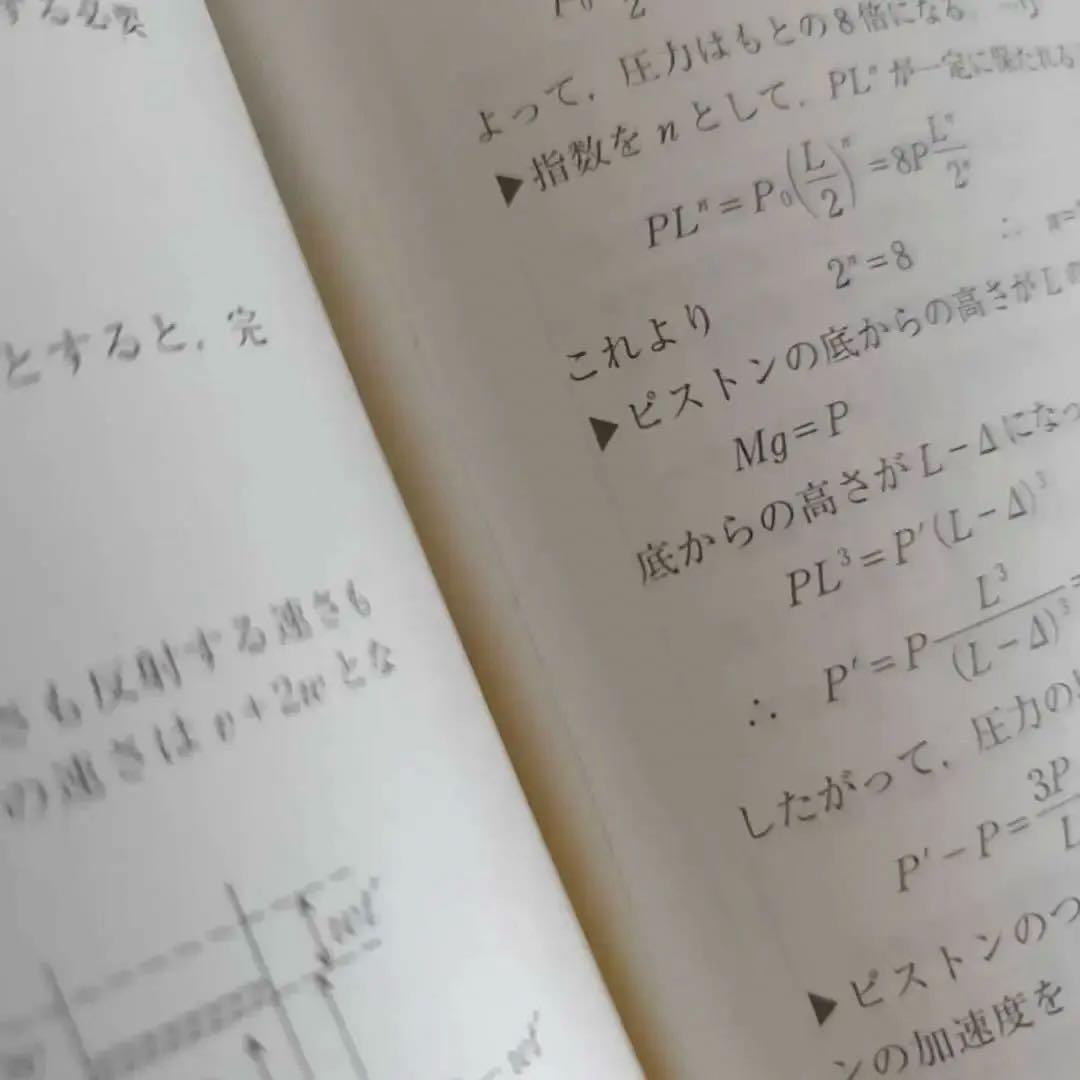 とすると，完
さも反射する速さも
の速さは v＋2w とな
wt′
P₀ 2
よって，圧力はもとの8倍になる。
▶指数を n として，PLⁿ が一定に保たれる
PLⁿ＝P₀(L/2)ⁿ＝8P Lⁿ/2ⁿ
これより 2ⁿ＝8 ∴ n＝
▶ピストンの底からの高さが L の
Mg＝P
底からの高さが L－Δ になっ
PL³＝P′(L－Δ)³
∴ P′＝P L³/(L－Δ)³＝
したがって，圧力の
P′－P＝3P/L
▶ピストンのつ
ンの加速度を